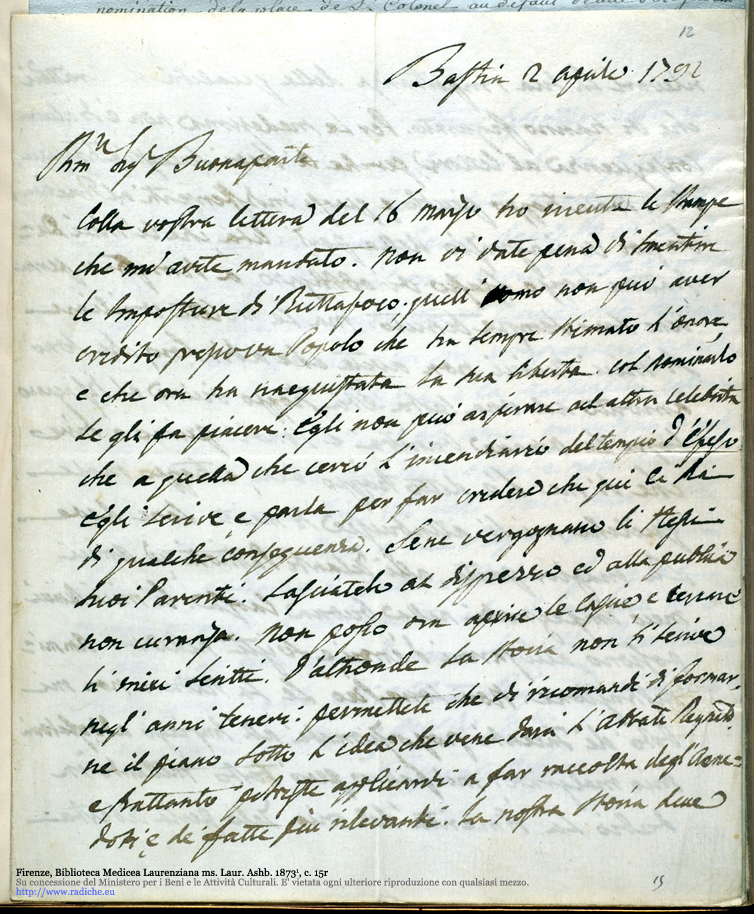 nomination de la place de Lt. Colonel au défaut
12
Bastia 2 aprile 1792
Buonaparte
Colla vostra lettera del 16 marzo ho ricevuta le Stampe
che m'avete mandato. Non vi date pena di smentire
le Imposture di Buttafoco, quell' uomo non può aver
credito presso un Popolo che ha sempre stimato l'onore,
e che ora ha riacquistata la sua libertà. Col nominarlo
se gli fa piacere. Egli non può aspirare ad altra celebrità
che a quella che cercò l'incendiario del tempio d'Efeso
Egli scrive, e parla per far credere che qui ci sia
di qualche conseguenza. Sene vergognano li stessi
suoi Parenti. Lasciatelo al disprezzo ed alla pubblica
non curanza. Non posso ora aprire le casse, e cercare
li miei scritti. D'altronde la storia non si scrive
negl' anni teneri: permettete che vi ricomandi di formar-
ne il piano sotto l'idea che vene darà l'Abbate
e frattanto potreste applicarvi a far raccolta degl'Anne=
doti e de' fatti più rilevanti. La nostra storia deve
15
Firenze, Biblioteca Medicea Laurenziana ms. Laur. Ashb. 1873¹, c. 15r
Su concessione del Ministero per i Beni e le Attività Culturali. E' vietata ogni ulteriore riproduzione con qualsiasi mezzo.
http://www.radiche.eu